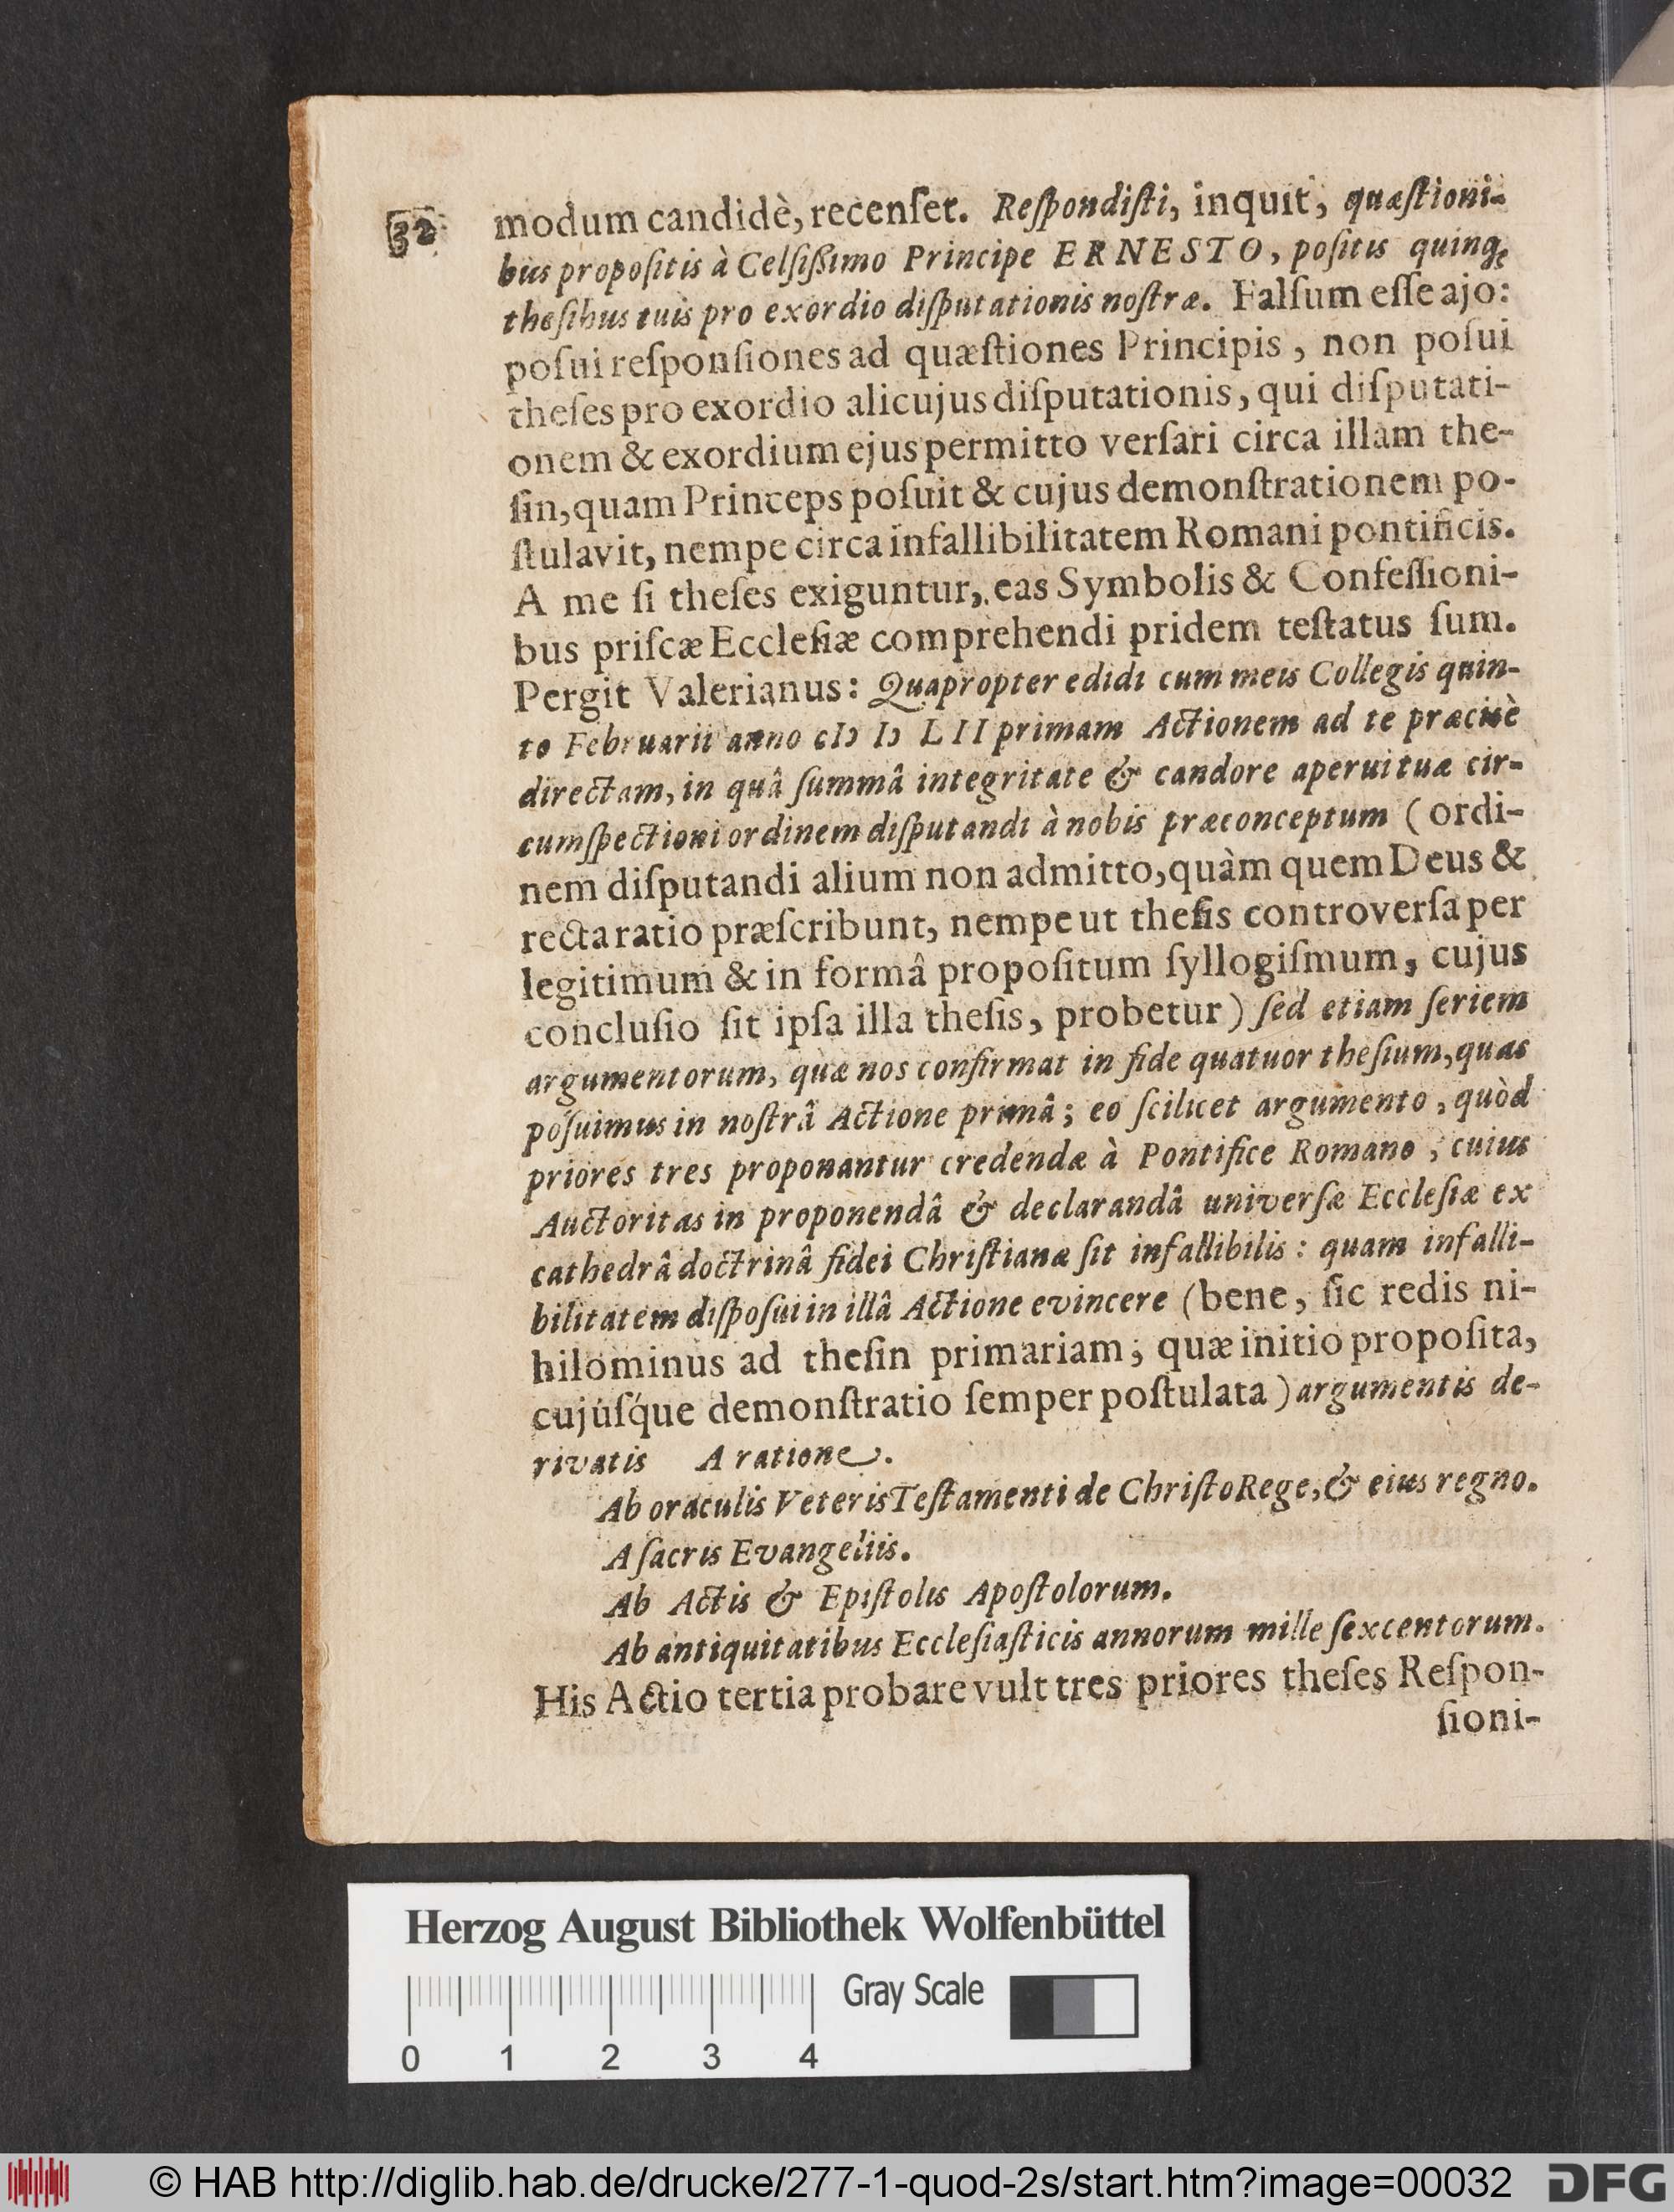 32
modum candidè, recenſet. Reſpondiſti, inquit, quæſtioni-
bus propoſitis à Celſiſſimo Principe ERNESTO, poſitis quinq;
theſibus tuis pro exordio diſputationis noſtræ. Falſum eſſe ajo:
poſui reſponſiones ad quæſtiones Principis, non poſui
theſes pro exordio alicujus diſputationis, qui diſputati-
onem & exordium ejus permitto verſari circa illam the-
ſin, quam Princeps poſuit & cujus demonſtrationem po-
ſtulavit, nempe circa infallibilitatem Romani pontificis.
A me ſi theſes exiguntur, eas Symbolis & Confeſſioni-
bus priſcæ Eccleſiæ comprehendi pridem teſtatus ſum.
Pergit Valerianus: Quapropter edidi cum meis Collegis quin-
to Februarii anno cIɔ Iɔ LII primam Actionem ad te præcisè
directam, in quâ ſummâ integritate & candore aperui tuæ cir-
cumſpectioni ordinem diſputandi à nobis præconceptum (ordi-
nem diſputandi alium non admitto, quàm quem Deus &
recta ratio præſcribunt, nempe ut theſis controverſa per
legitimum & in formâ propoſitum ſyllogiſmum, cujus
concluſio ſit ipſa illa theſis, probetur) ſed etiam ſeriem
argumentorum, quæ nos confirmat in fide quatuor theſium, quas
poſuimus in noſtrâ Actione primâ; eo ſcilicet argumento, quòd
priores tres proponantur credendæ à Pontifice Romano, cuius
Auctoritas in proponendâ & declarandâ univerſæ Eccleſiæ ex
cathedrâ doctrinâ fidei Chriſtianæ ſit infallibilis: quam infalli-
bilitatem diſpoſui in illâ Actione evincere (bene, ſic redis ni-
hilominus ad theſin primariam; quæ initio propoſita,
cujúſque demonſtratio ſemper poſtulata) argumentis de-
rivatis A ratione.
Ab oraculis Veteris Teſtamenti de Chriſto Rege, & eius regno.
A ſacris Evangeliis.
Ab Actis & Epiſtolis Apoſtolorum.
Ab antiquitatibus Eccleſiaſticis annorum mille ſexcentorum.
His Actio tertia probare vult tres priores theſes Reſpon-
ſioni-
Herzog August Bibliothek Wolfenbüttel
Gray Scale
0 1 2 3 4
© HAB http://diglib.hab.de/drucke/277-1-quod-2s/start.htm?image=00032 DFG